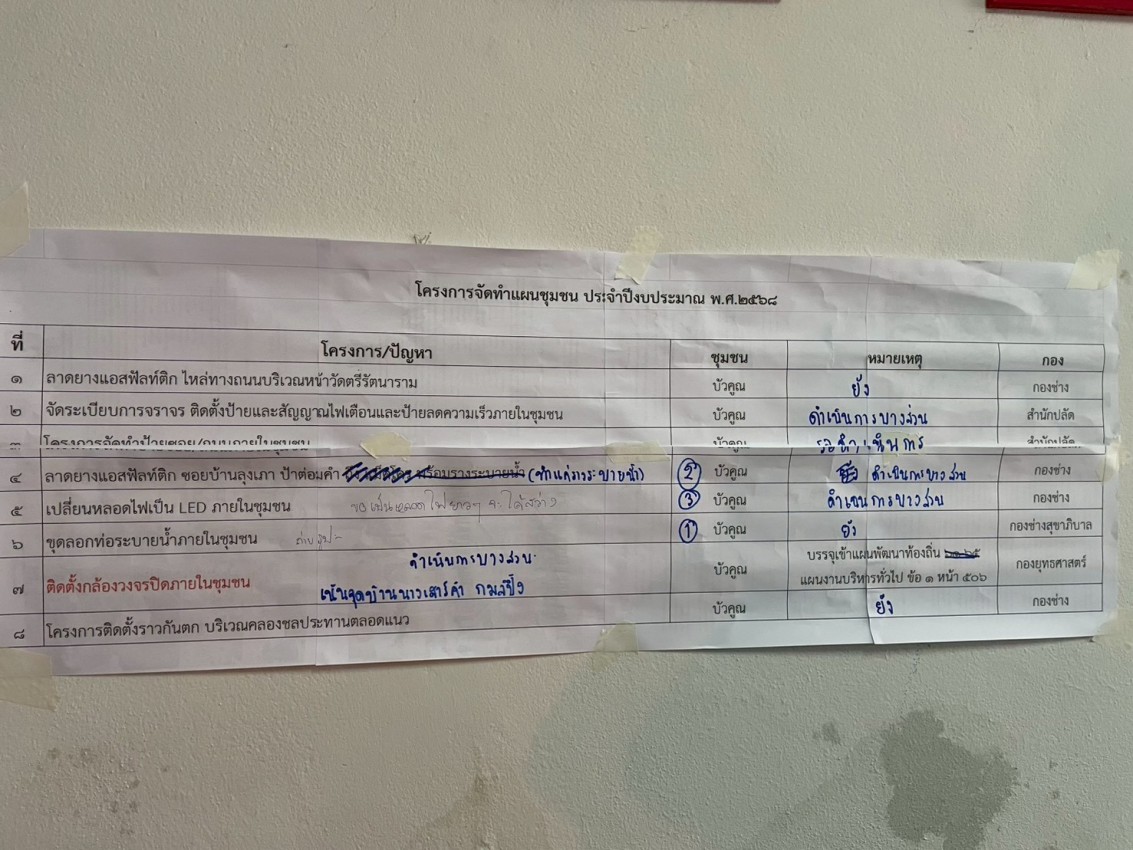 โครงการจัดทำแผนชุมชน ประจำปีงบประมาณ พ.ศ.๒๕๖๘
ที่ โครงการ/ปัญหา ชุมชน หมายเหตุ กอง
๑ ลาดยางแอสฟัลท์ติก ไหล่ทางถนนบริเวณหน้าวัดตรีรัตนาราม บัวคูณ ยัง กองช่าง
๒ จัดระเบียบการจราจร ติดตั้งป้ายและสัญญาณไฟเตือนและป้ายลดความเร็วภายในชุมชน บัวคูณ ดำเนินการบางส่วน สำนักปลัด
๓ โครงการจัดทำป้ายซอย/ถนนภายในชุมชน บัวคูณ รอดำเนินการ สำนักปลัด
๔ ลาดยางแอสฟัลท์ติก ซอยบ้านลุงเภา ป้าต่อมคำ พร้อมรางระบายน้ำ (ทำแค่รางระบายน้ำ) ② บัวคูณ ดำเนินการบางส่วน กองช่าง
๕ เปลี่ยนหลอดไฟเป็น LED ภายในชุมชน ขอเป็นหลอดไฟยาวๆ จะได้สว่าง ③ บัวคูณ ดำเนินการบางส่วน กองช่าง
๖ ขุดลอกท่อระบายน้ำภายในชุมชน ① บัวคูณ ยัง กองช่างสุขาภิบาล
ดำเนินการบางส่วน
๗ ติดตั้งกล้องวงจรปิดภายในชุมชน บัวคูณ บรรจุเข้าแผนพัฒนาท้องถิ่น กองยุทธศาสตร์
เน้นจุดบ้านนางเสาร์คำ แผนงานบริหารทั่วไป ข้อ ๑ หน้า ๕๐๖
๘ โครงการติดตั้งราวกันตก บริเวณคลองชลประทานตลอดแนว บัวคูณ ยัง กองช่าง